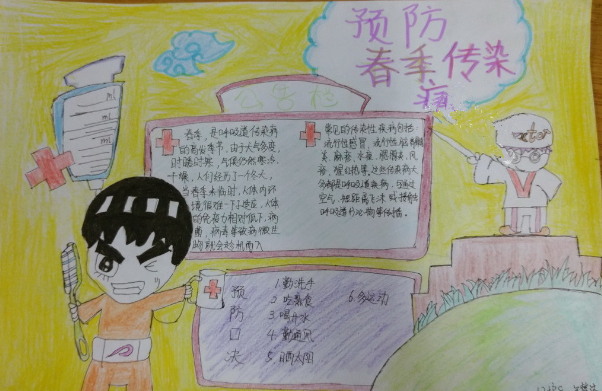 预防
春季传染
病
公告栏
春季,是呼吸道传染病
的高发季节,由于大气多变,
时暖时寒,气候仍然寒冷、
干燥,人们经历了一个冬天,
当春季来临时,人体内环
境很难一下子适应,人体
的免疫力相对低下,病
菌、病毒等致病微生
物就会趁机而入
常见的传染性疾病包括
流行性感冒、流行性脑脊髓膜
炎、麻疹、水痘、腮腺炎、风
疹、猩红热等,这些传染病大
多都是呼吸道疾病,可通过
空气、短距离飞沫
呼吸道分泌物等传播。
预防口决
1.勤洗手
2.吃熟食
3.喝开水
4.勤通风
5.晒太阳
6.多运动
ml
ml
ml